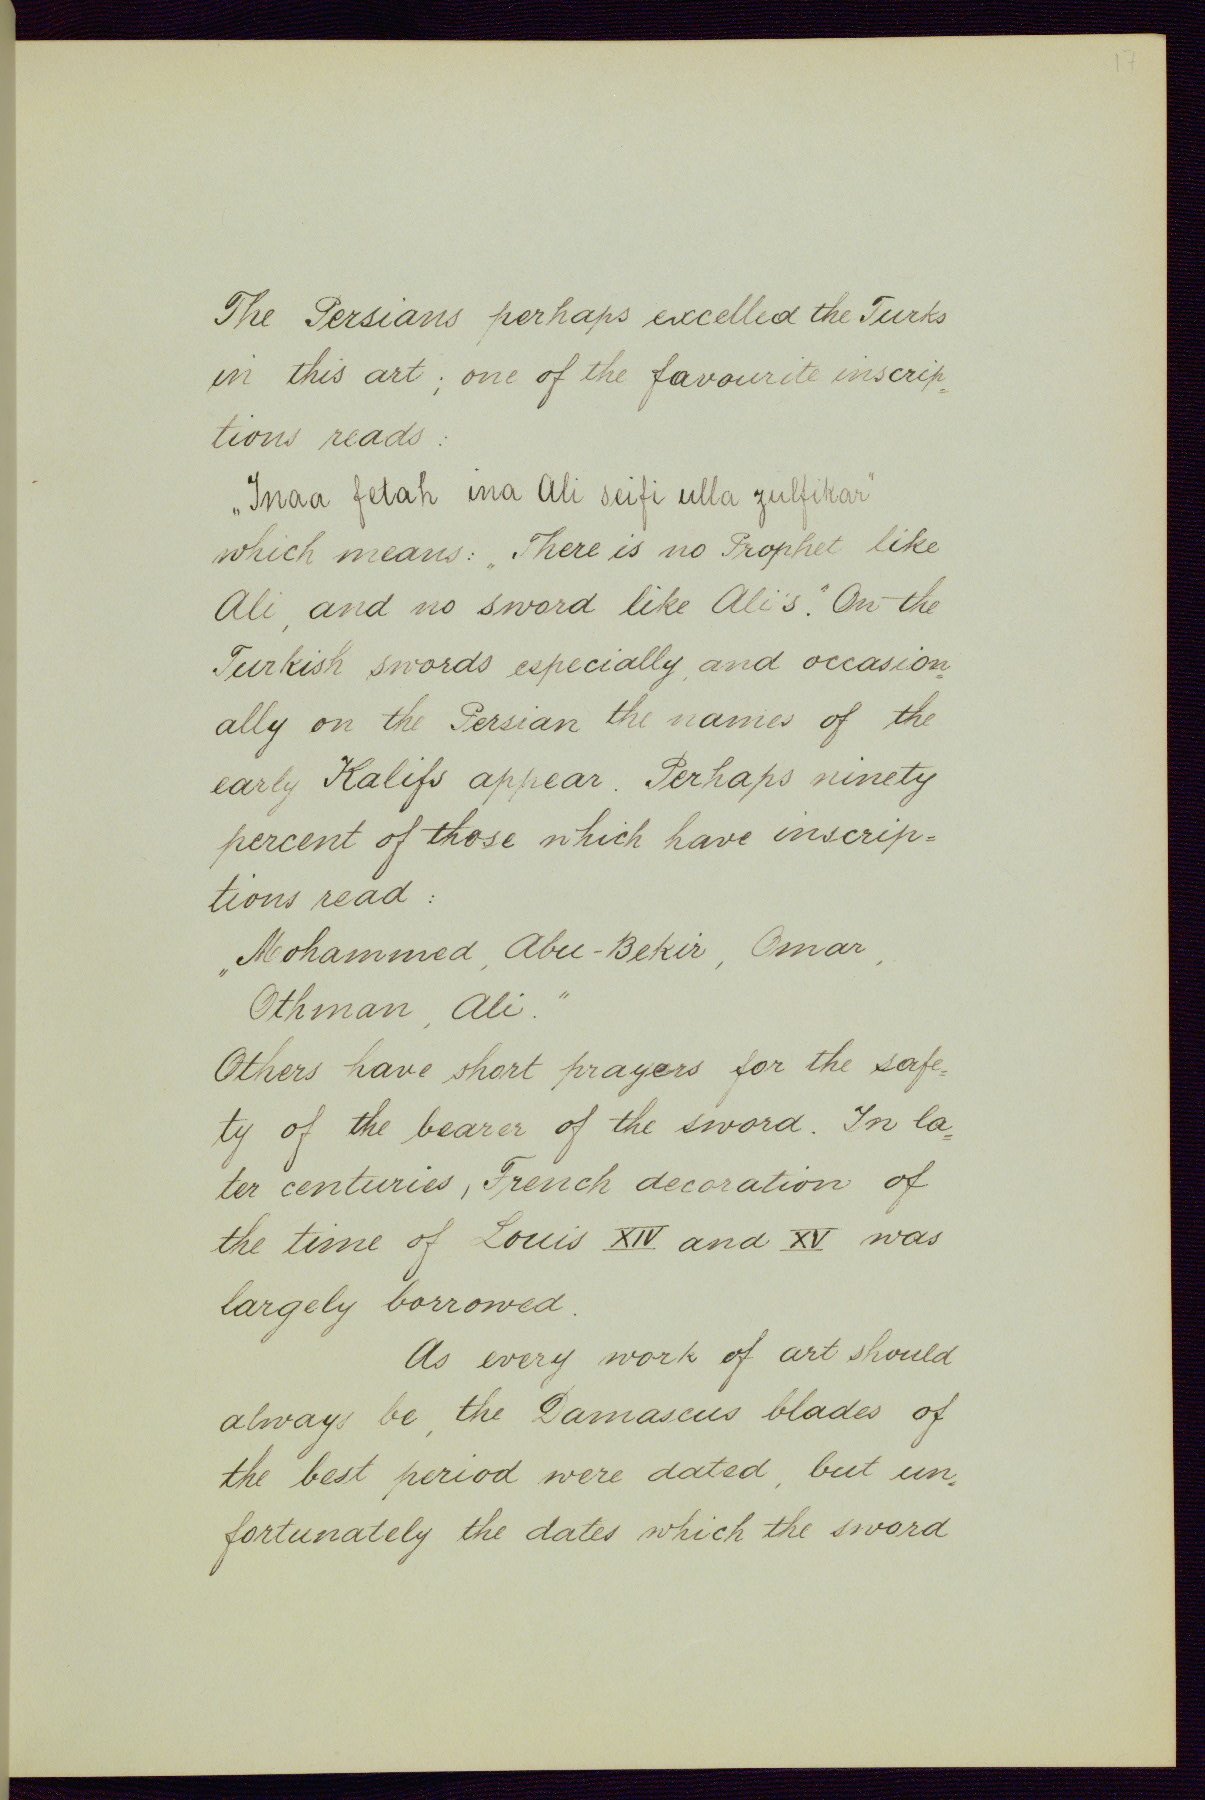 17
The Persians perhaps excelled the Turks
in this art; one of the favourite inscrip=
tions reads:
„Inaa fetah ina Ali seifi ulla zulfikar"
which means: „There is no Prophet like
Ali, and no sword like Ali's." On the
Turkish swords especially, and occasion=
ally on the Persian the names of the
early Kalifs appear. Perhaps ninety
percent of those which have inscrip=
tions read:
„Mohammed, Abu-Bekir, Omar,
Othman, Ali."
Others have short prayers for the safe=
ty of the bearer of the sword. In la=
ter centuries, French decoration of
the time of Louis XIV and XV was
largely borrowed.
As every work of art should
always be, the Damascus blades of
the best period were dated, but un=
fortunately the dates which the sword